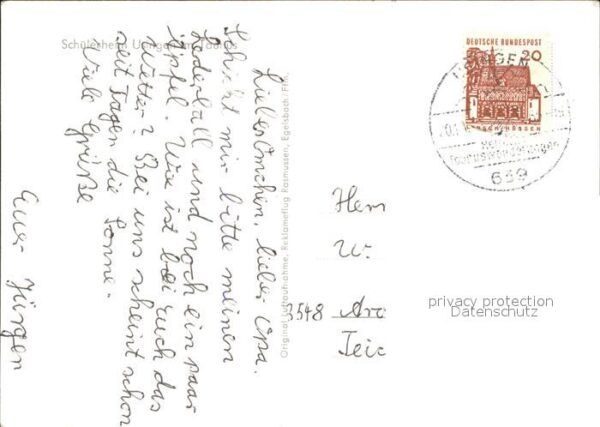 Schülerheim Usingen im Taunus
Liebes Omchen, lieber Opa.
Schickt mir bitte meinen
Lederball und noch ein paar
Äpfel. Wie ist bei euch das
Wetter? Bei uns scheint schon
seit Tagen die Sonne.
Viele Grüße
Euer Jürgen
Original Luftaufnahme, Reklameflug Rasmussen, Egelsbach/Ffm.
DEUTSCHE BUNDESPOST
20
LORSCH HESSEN
USINGEN
639
Herrn
W.
3548 Aro
Teic
privacy protection
Datenschutz